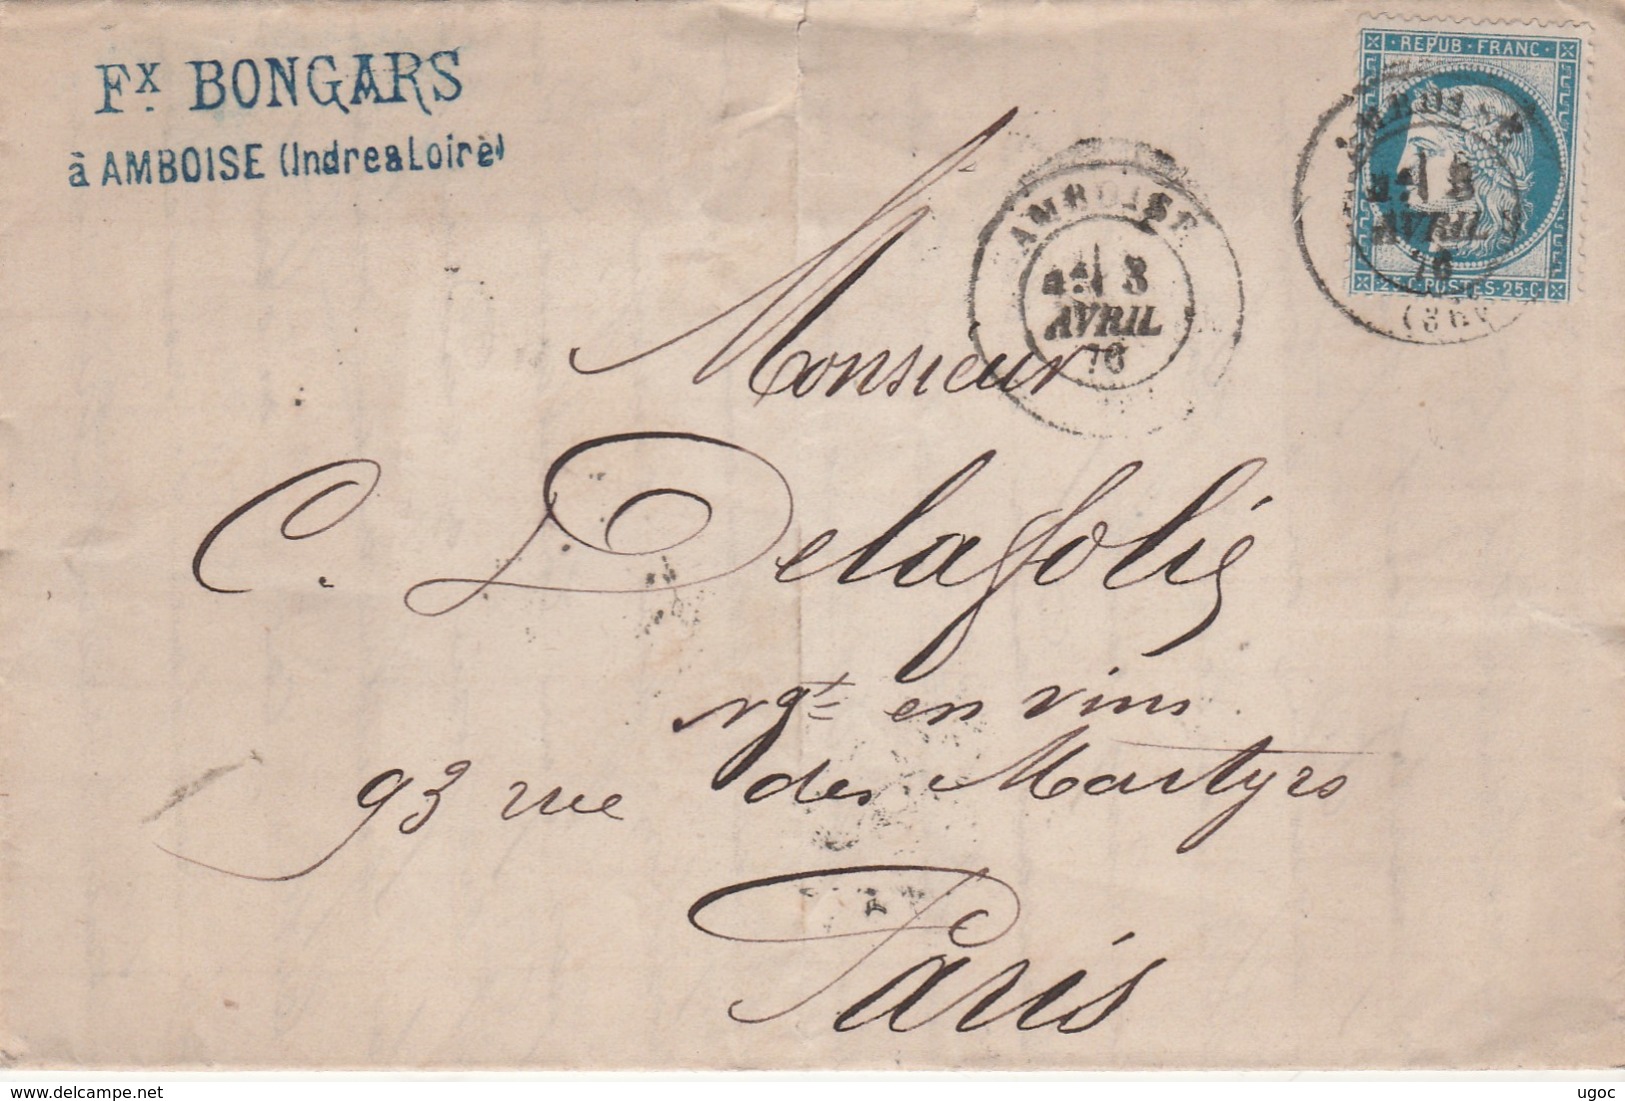 Fx. BONGARS
à AMBOISE (Indre & Loire)
REPUB · FRANC ·
AMBOISE
3
AVRIL
76
25·C·POSTES·25·C
AMBOISE
3
AVRIL
76
Monsieur
C. Delafolie
ngt en vins
93 rue des Martyrs
Paris
© delcampe.net
ugoc